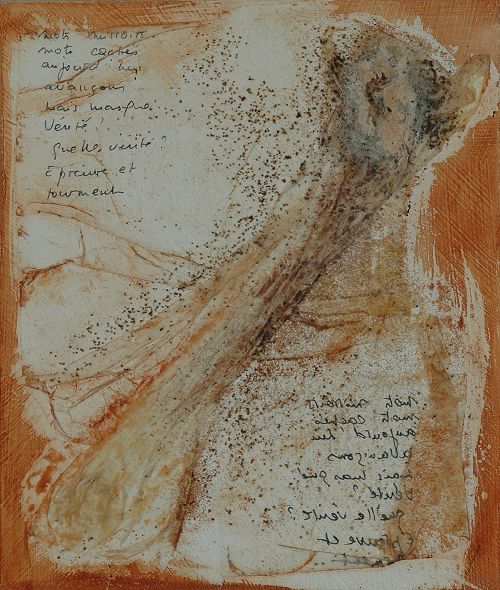 mots miroirs
mots cachés
aujourd'hui
avançons
mais masqué
Vérité!
quelle vérité?
Epreuve et
tourment
mot miroir
mot cachés
aujourd hui
avançons
mais masqué
vérité?
quelle vérité?
Epreuve et